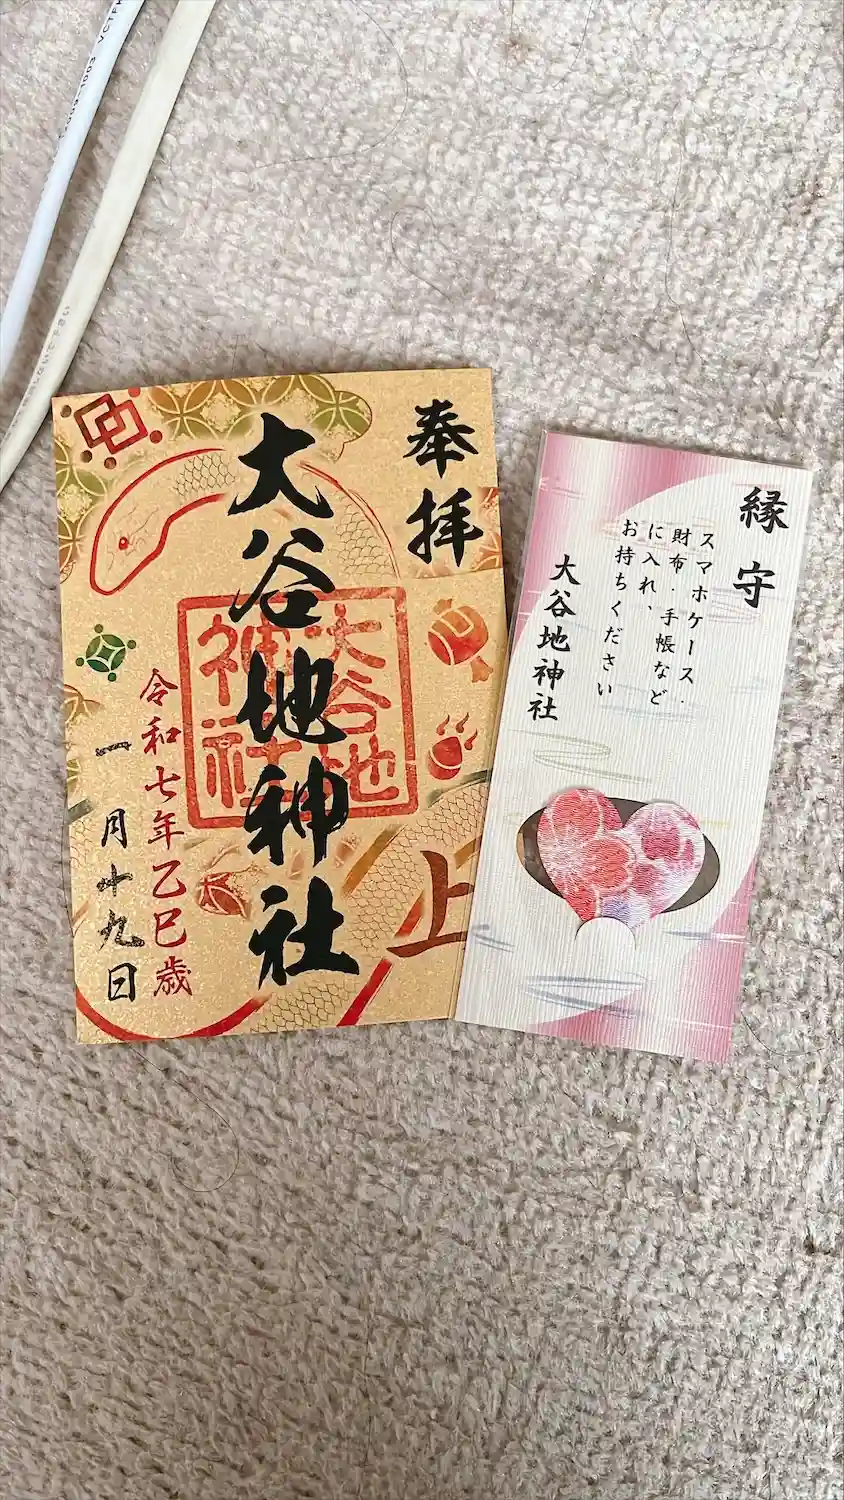 奉拝
大谷地神社
大谷地
神社
上
令和七年乙巳歳
一月十九日
縁守
スマホケース・
財布・手帳など
に入れ、
お持ちください
大谷地神社